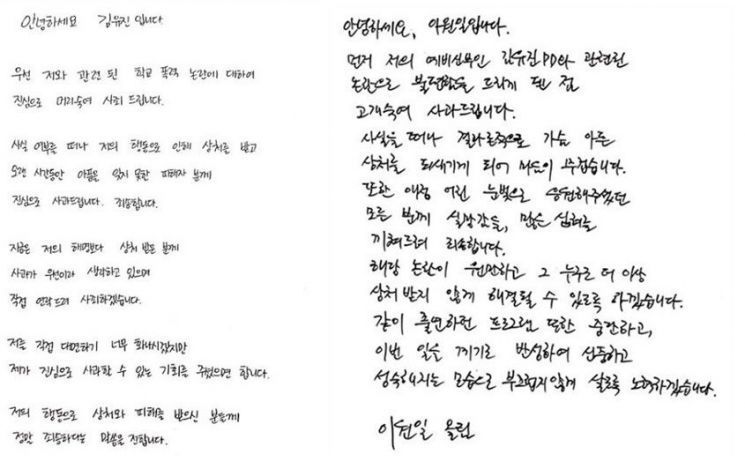 안녕하세요 김유진 입니다.
우선 저와 관련 된 학교 폭력 논란에 대하여
진심으로 머리숙여 사죄 드립니다.
사실 여부를 떠나 저의 행동으로 인해 상처를 받고
오랜 시간동안 아픔을 잊지 못한 피해자 분께
진심으로 사과드립니다. 죄송합니다.
지금은 저의 해명보다 상처 받은 분께
사과가 우선이라 생각하고 있으며
직접 연락드려 사죄하겠습니다.
저를 직접 대면하기 너무 화나시겠지만
제가 진심으로 사과할 수 있는 기회를 주셨으면 합니다.
저의 행동으로 상처와 피해를 받으신 분들께
정말 죄송하다는 말씀을 전합니다.
안녕하세요, 이원일입니다.
먼저 저의 예비신부인 김유진PD와 관련된
논란으로 불편함을 드리게 된 점
고개숙여 사과드립니다.
사실을 떠나 결과론적으로 가슴 아픈
상처를 되새기게 되어 마음이 무겁습니다.
또한 애정 어린 눈빛으로 응원해주셨던
모든 분께 실망감을, 많은 심려를
끼쳐드려 죄송합니다.
해당 논란이 원만하고 그 누구도 더 이상
상처 받지 않게 해결될 수 있도록 하겠습니다.
같이 출연하던 프로그램 또한 중단하고,
이번 일을 계기로 반성하여 신중하고
성숙해지는 모습으로 부끄럽지않게 살도록 노력하겠습니다.
이원일 올림